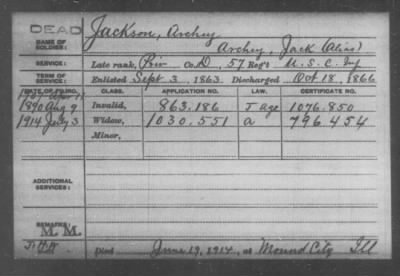 DEAD
NAME OF SOLDIER: Jackson, Archey
Archey, Jack (Alias)
SERVICE: Late rank, Priv Co. D, 57 Reg't U.S.C. Inf
TERM OF SERVICE: Enlisted Sept 3, 1863 Discharged Oct 18, 1866
DATE OF FILING. CLASS. APPLICATION NO. LAW. CERTIFICATE NO.
1890 Aug 9 Invalid, 863.186 J age 1076.850
1914 July 3 Widow, 1030.551 a 796454
Minor,
ADDITIONAL SERVICES:
REMARKS:
M. M.
Died June 19, 1914, at Mound City Ill